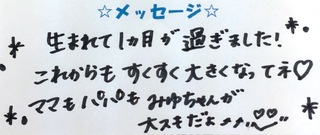 ☆メッセージ☆
生まれて1ヵ月が過ぎました!
これからもすくすく大きくなってネ♡
ママもパパもみゆちゃんが
大スキだよ